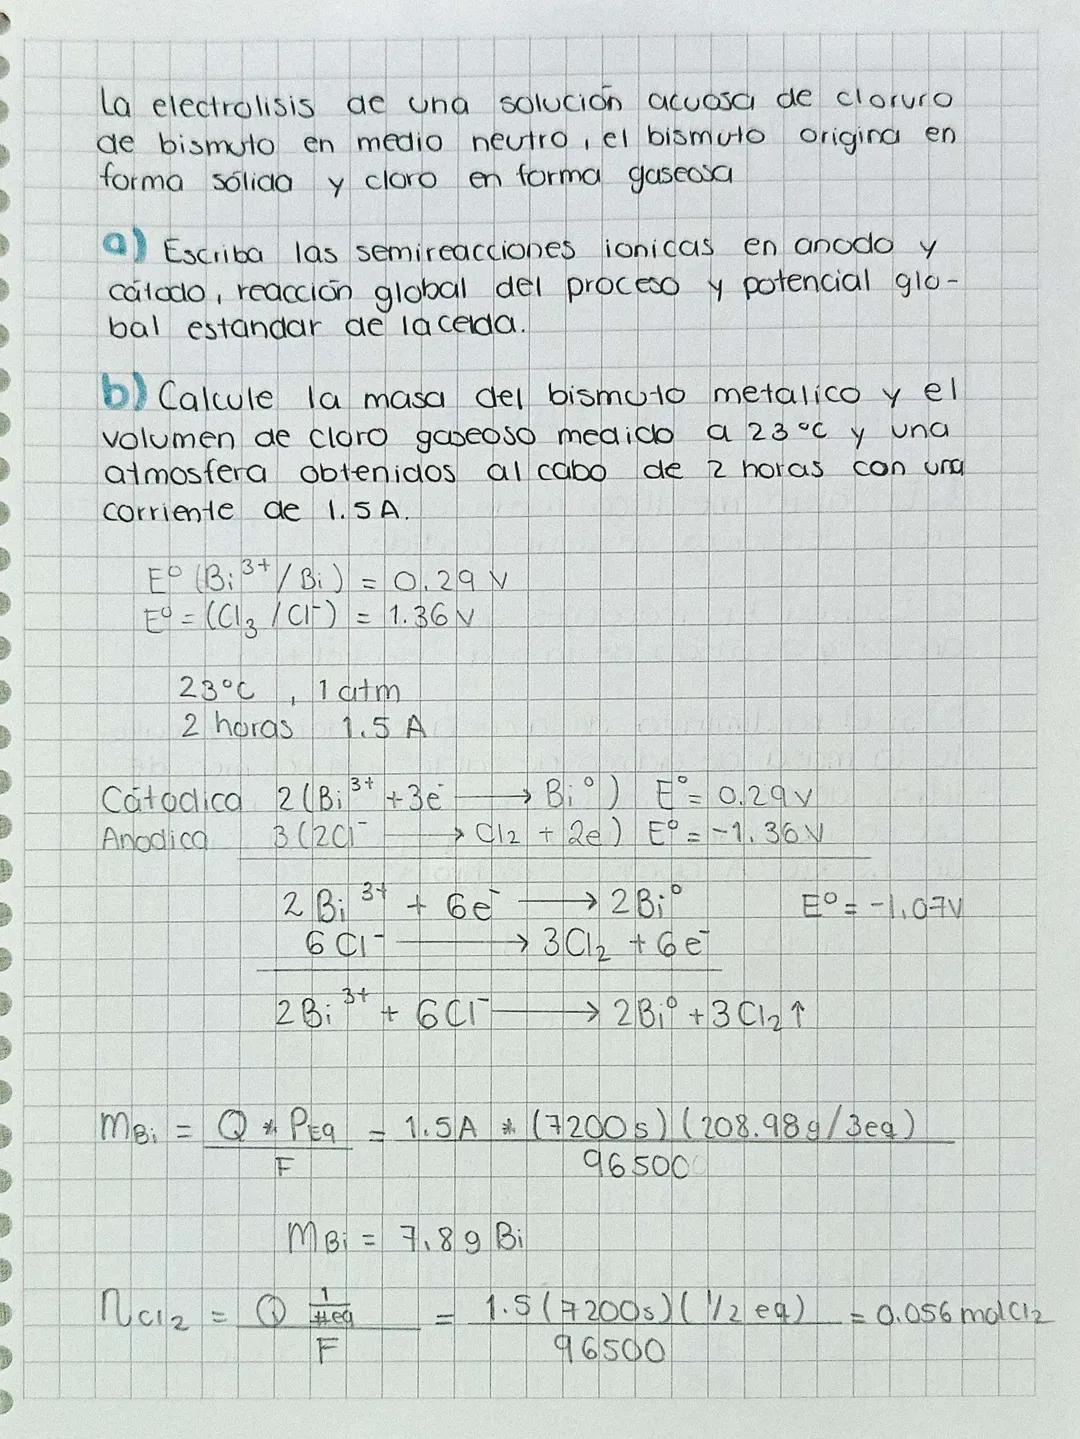 La electrolisis de una solución acuosa de cloruro
de bismuto en medio neutro, el bismuto origina en
forma sólida y cloro en forma gaseosa
a) Escriba las semireacciones ionicas en anodo y
cátodo, reacción global del proceso y potencial glo-
bal estandar de la celda.
b) Calcule la masa del bismuto metalico y el
volumen de cloro gaseoso medido a 23 °C y una
atmosfera obtenidos al cabo de 2 horas con una
corriente de 1.5 A.
E° (Bi³⁺ / Bi) = 0.29 V
E° = (Cl₃ / Cl⁻) = 1.36 V
23°C , 1 atm
2 horas 1.5 A
Cátodica 2(Bi³⁺ + 3e⁻ → Bi°) E° = 0.29 V
Anodica 3(2Cl⁻ → Cl₂ + 2e) E° = -1.36 V
2Bi³⁺ + 6e⁻ → 2Bi° E° = -1.07V
6Cl⁻ → 3Cl₂ + 6e⁻
2Bi³⁺ + 6Cl⁻ → 2Bi° + 3Cl₂ ↑
mBi = Q * PEq / F = 1.5A * (7200s) (208.98g/3eq) / 96500
mBi = 7.8g Bi
nCl₂ = Q 1/#eq / F = 1.5 (7200s) (1/2 eq) / 96500 = 0.056 mol Cl₂